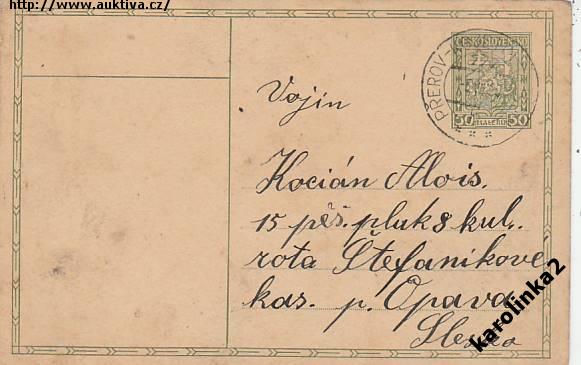 http://www.auktiva.cz/
ČESKOSLOVENSKO
50 HALÉŘŮ 50
PŘEROV
Vojín
Kocián Alois.
15 pěš. pluk 8 kul.
rota Štefanikové
kas. p. Opava
karolinka2